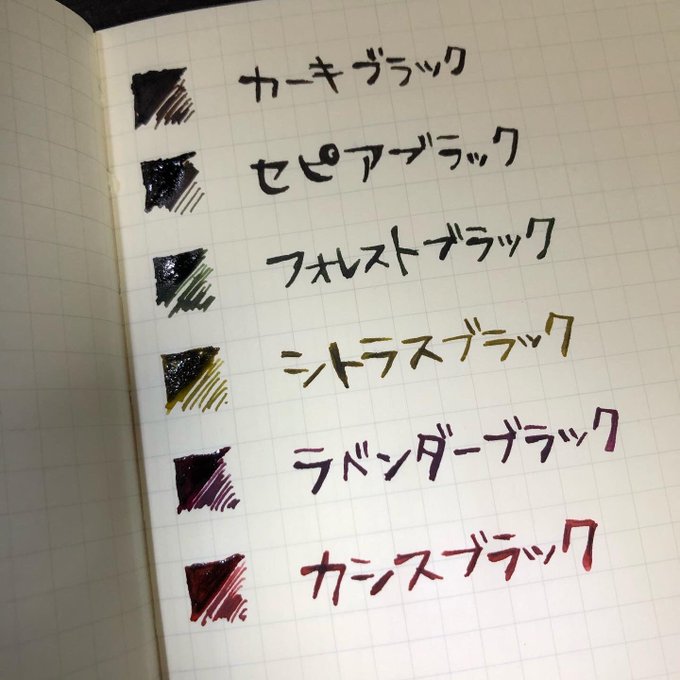 カーキブラック
セピアブラック
フォレストブラック
シトラスブラック
ラベンダーブラック
カシスブラック